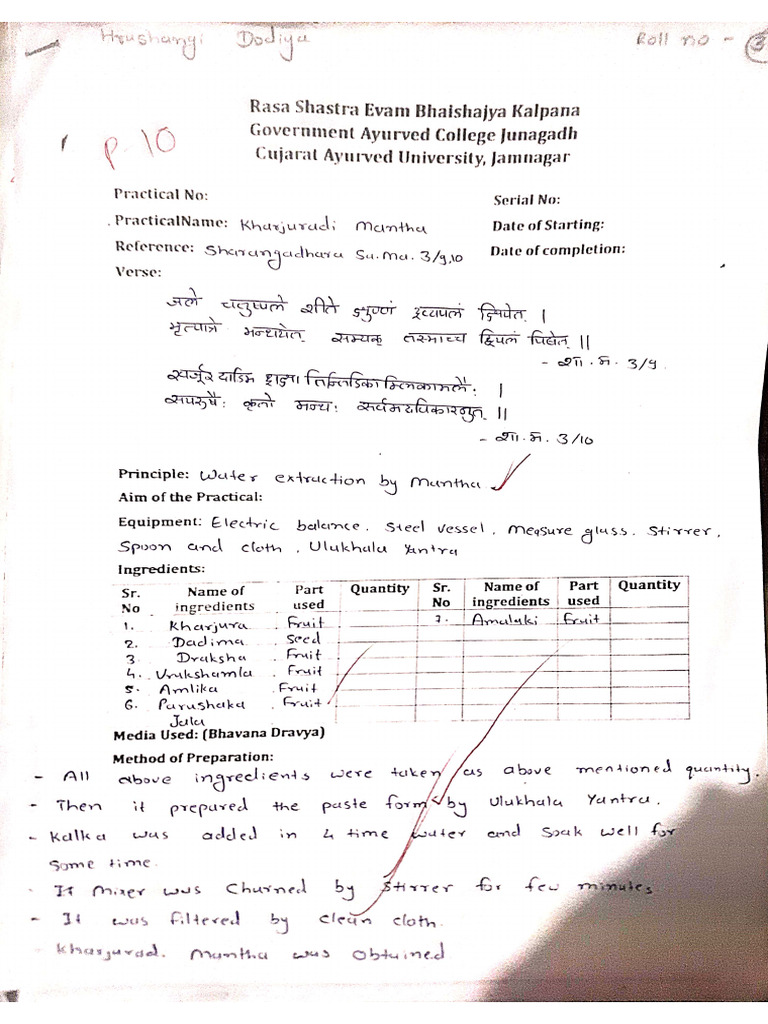 Hrushangi Dodiya Roll no - 3
Rasa Shastra Evam Bhaishajya Kalpana
Government Ayurved College Junagadh
Gujarat Ayurved University, Jamnagar
P-10
Practical No: Serial No:
PracticalName: Kharjuradi Mantha Date of Starting:
Reference: Sharangadhara Su.Ma. 3/9,10 Date of completion:
Verse:
जले चतुष्पले शीते क्षुण्णं द्रव्यपलं क्षिपेत् ।
मृत्पात्रे मन्थयेत् सम्यक् तस्माच्च द्विपलं पिबेत् ॥
- शा. म. 3/9
खर्जूर दाडिम द्राक्षा तिन्तिडिका म्लिकामलैः ।
सपरुषैः कृतो मन्थः सर्वमद्यविकारनुत् ॥
- शा. म. 3/10
Principle: Water extraction by Mantha
Aim of the Practical:
Equipment: Electric balance. Steel vessel, Measure glass. Stirrer,
Spoon and cloth, Ulukhala Yantra
Ingredients:
Sr. No Name of ingredients Part used Quantity Sr. No Name of ingredients Part used Quantity
1. Kharjura Fruit 7. Amalaki Fruit
2. Dadima Seed
3. Draksha Fruit
4. Vrukshamla Fruit
5. Amlika Fruit
6. Parushaka Fruit
Jala
Media Used: (Bhavana Dravya)
Method of Preparation:
- All above ingredients were taken as above mentioned quantity.
- Then it prepared the paste form by Ulukhala Yantra.
- Kalka was added in 4 time water and Soak well for
some time.
- It Mixer was Churned by Stirrer for few minutes
- It was filtered by clean cloth.
- Kharjurad. Mantha was Obtained